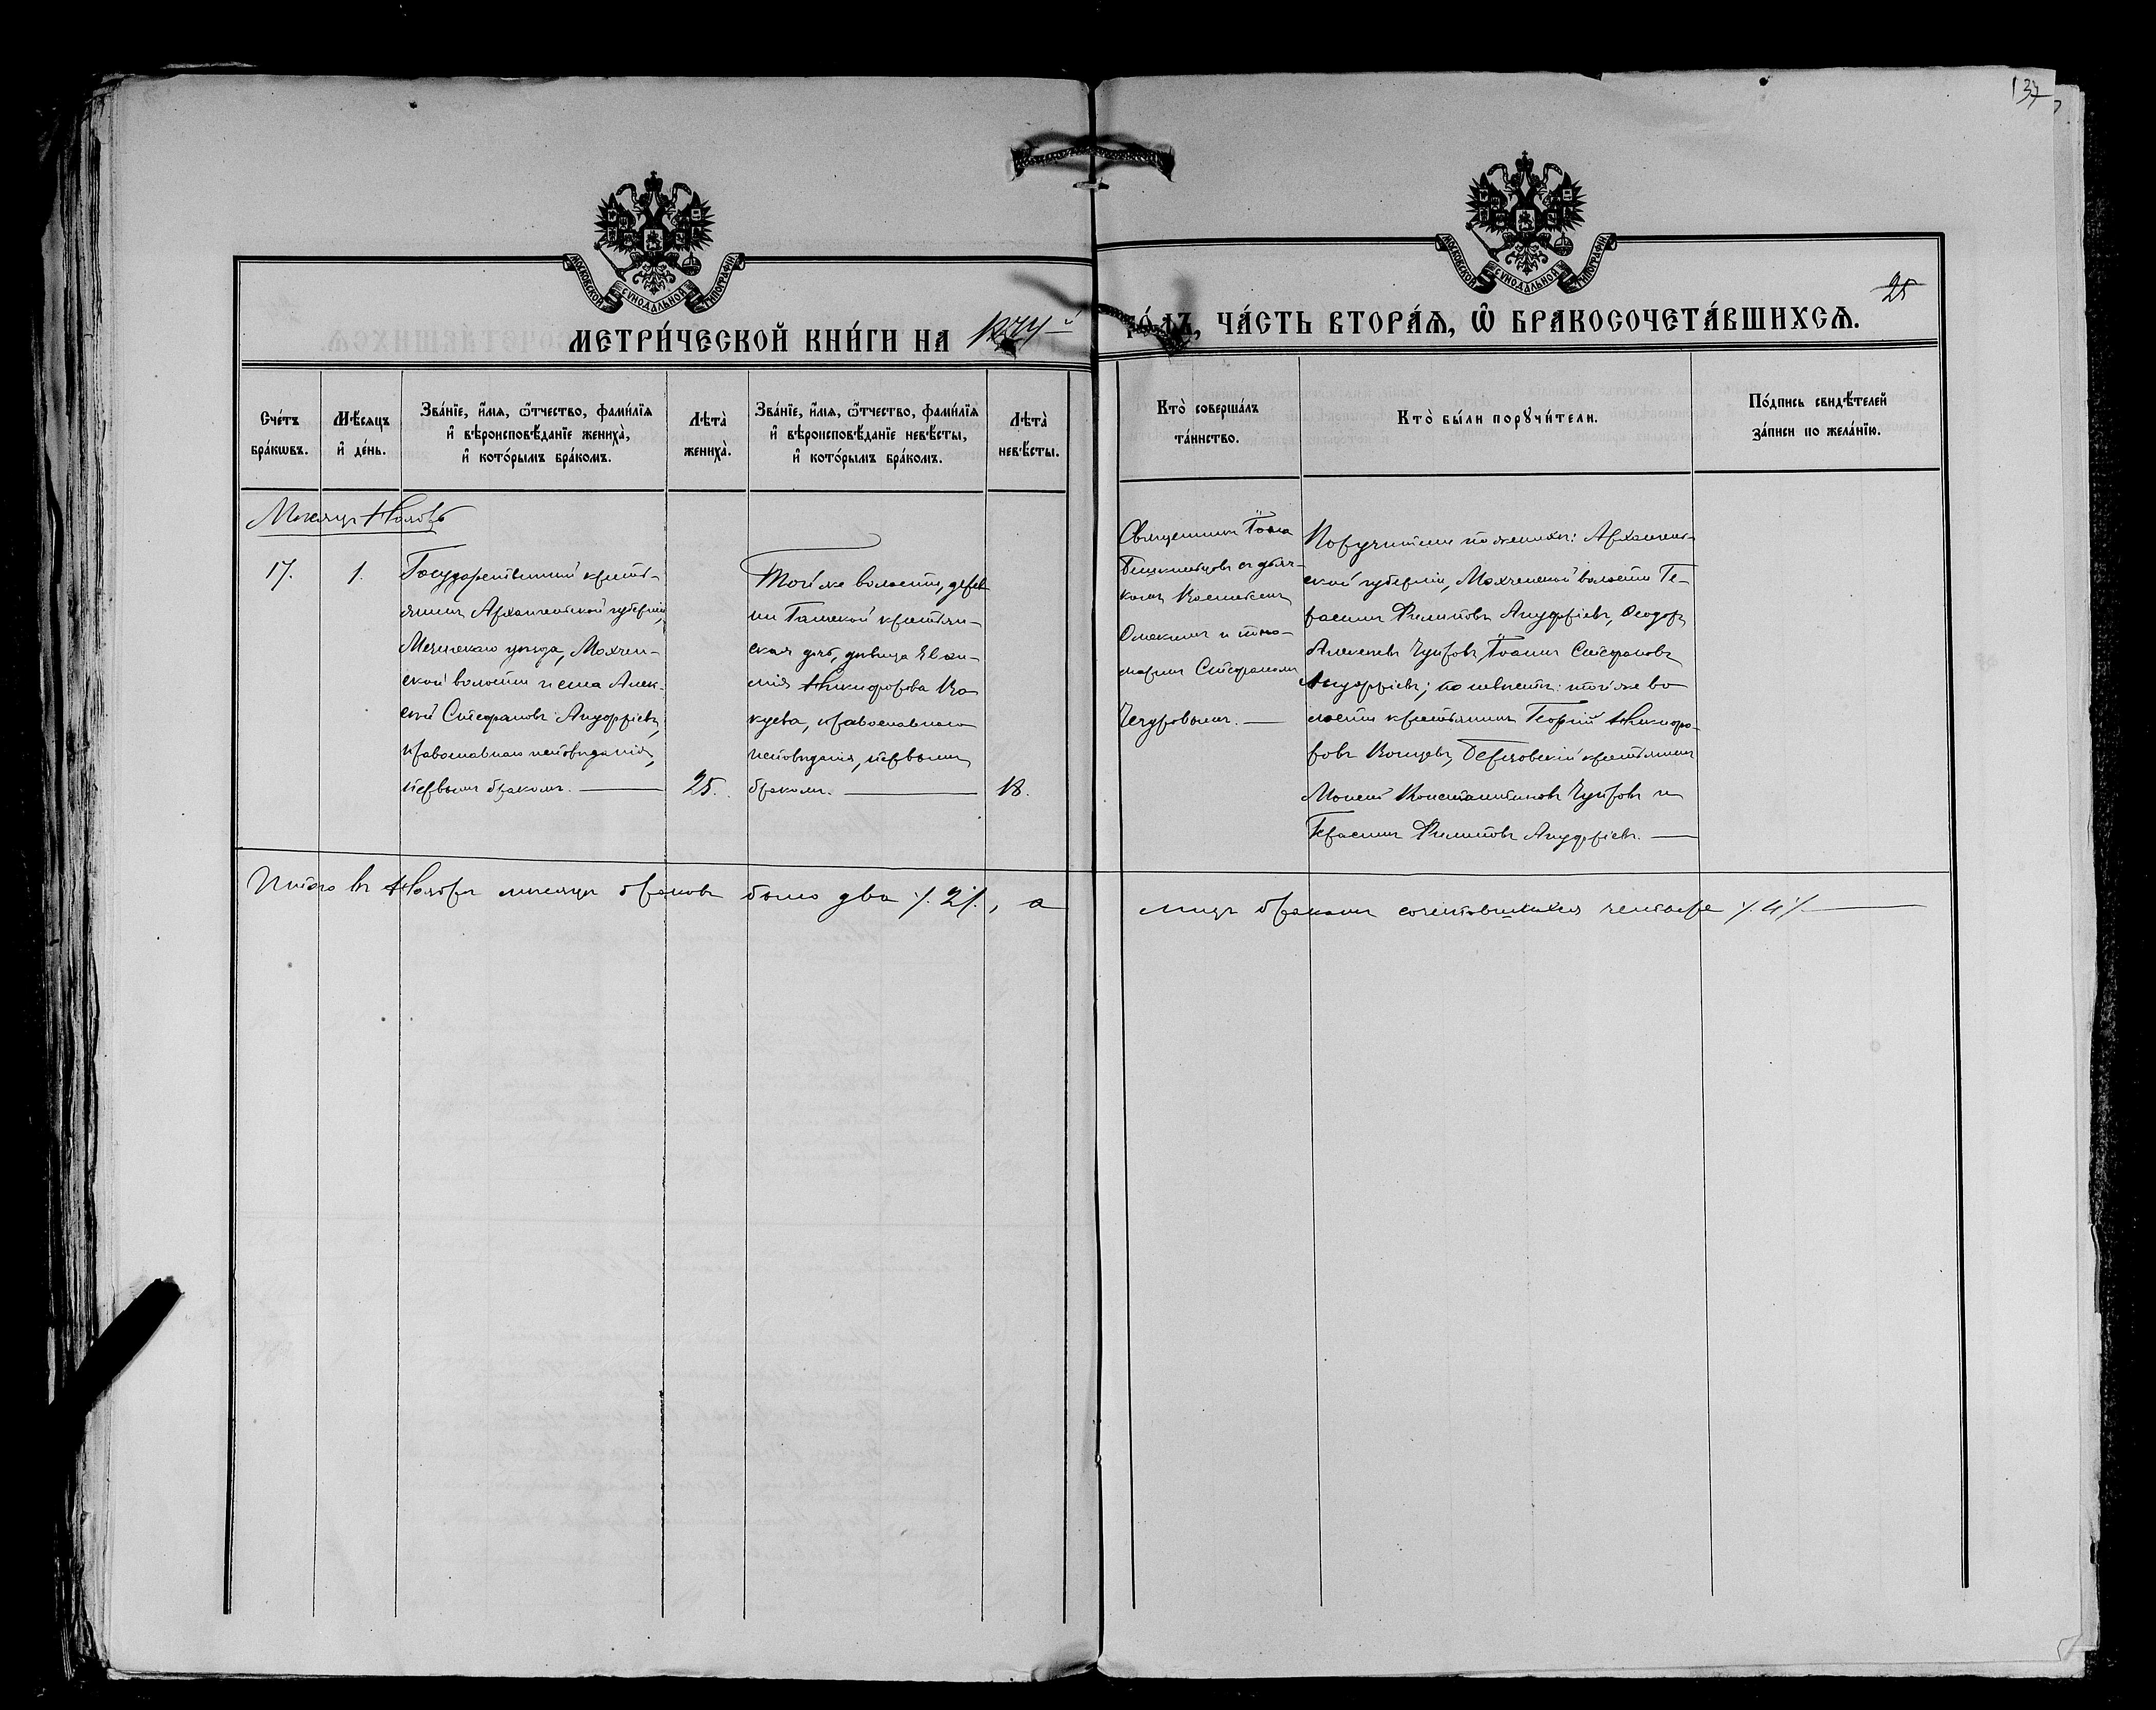 137
МОСКОВСКОЙ СѴНОДАЛЬНОЙ ТИПОГРАФІИ
МОСКОВСКОЙ СѴНОДАЛЬНОЙ ТИПОГРАФІИ
25
МЕТРИ́ЧЕСКОЙ КНИ́ГИ НА 1874 й
ГО́ДЪ, ЧА́СТЬ ВТОРА́Ѧ, Ѽ БРАКОСОЧЕТА́ВШИХСѦ.
Сче́тъ бра́кѡвъ.
Мѣ́сѧцъ и҆ де́нь.
Зва́нїе, и҆́мѧ, ѻ҆́тчество, фами́лїѧ
и҆ вѣроисповѣ́данїе жениха̀,
и҆ кото́рымъ бра́комъ.
Лѣта̀ жениха̀.
Зва́нїе, и҆́мѧ, ѻ҆́тчество, фами́лїѧ
и҆ вѣроисповѣ́данїе невѣ́сты,
и҆ кото́рымъ бра́комъ.
Лѣта̀ невѣ́сты.
Кто̀ соверша́лъ
та́инство.
Кто̀ бы́ли порꙋчи́тели.
По́дпись свидѣ́телей
за́писи по жела́нїю.
Мѣсяцъ Ноябрь
17.
1.
Государственный кресть-
янинъ Архангельской губерніи,
Мезенскаго уѣзда, Мохчен-
ской волости и села Алек-
сѣй Стефановъ Ануфріевъ,
православнаго исповѣданія,
первымъ бракомъ.
25.
Той же волости, дерев
ни Гамской крестьян-
ская дочь, дѣвица Евѳи-
мія Никифорова Ка
православнаго
исповѣданія, первымъ
бракомъ.
18.
Священникъ Іоаннъ
съ дьяч-
комъ
и поно-
маремъ Стефаномъ
Поручители по женихѣ: Архангель-
ской губерніи, Мохченской волости Ге-
расимъ Филиповъ Ануфріевъ, Ѳеодоръ
Алексѣевъ Чупровъ, Іоаннъ Стефановъ
Ануфріевъ; по невѣстѣ: той же во
лости крестьянинъ Георгій Никифо-
ровъ крестьянинъ
Моисей Константиновъ Чупровъ и
Герасимъ Филиповъ Ануфріевъ.
Итого въ Ноябрѣ мѣсяцѣ браковъ было два /. 2 /., а
лицъ бракомъ сочетавшихся четыре /. 4 /.